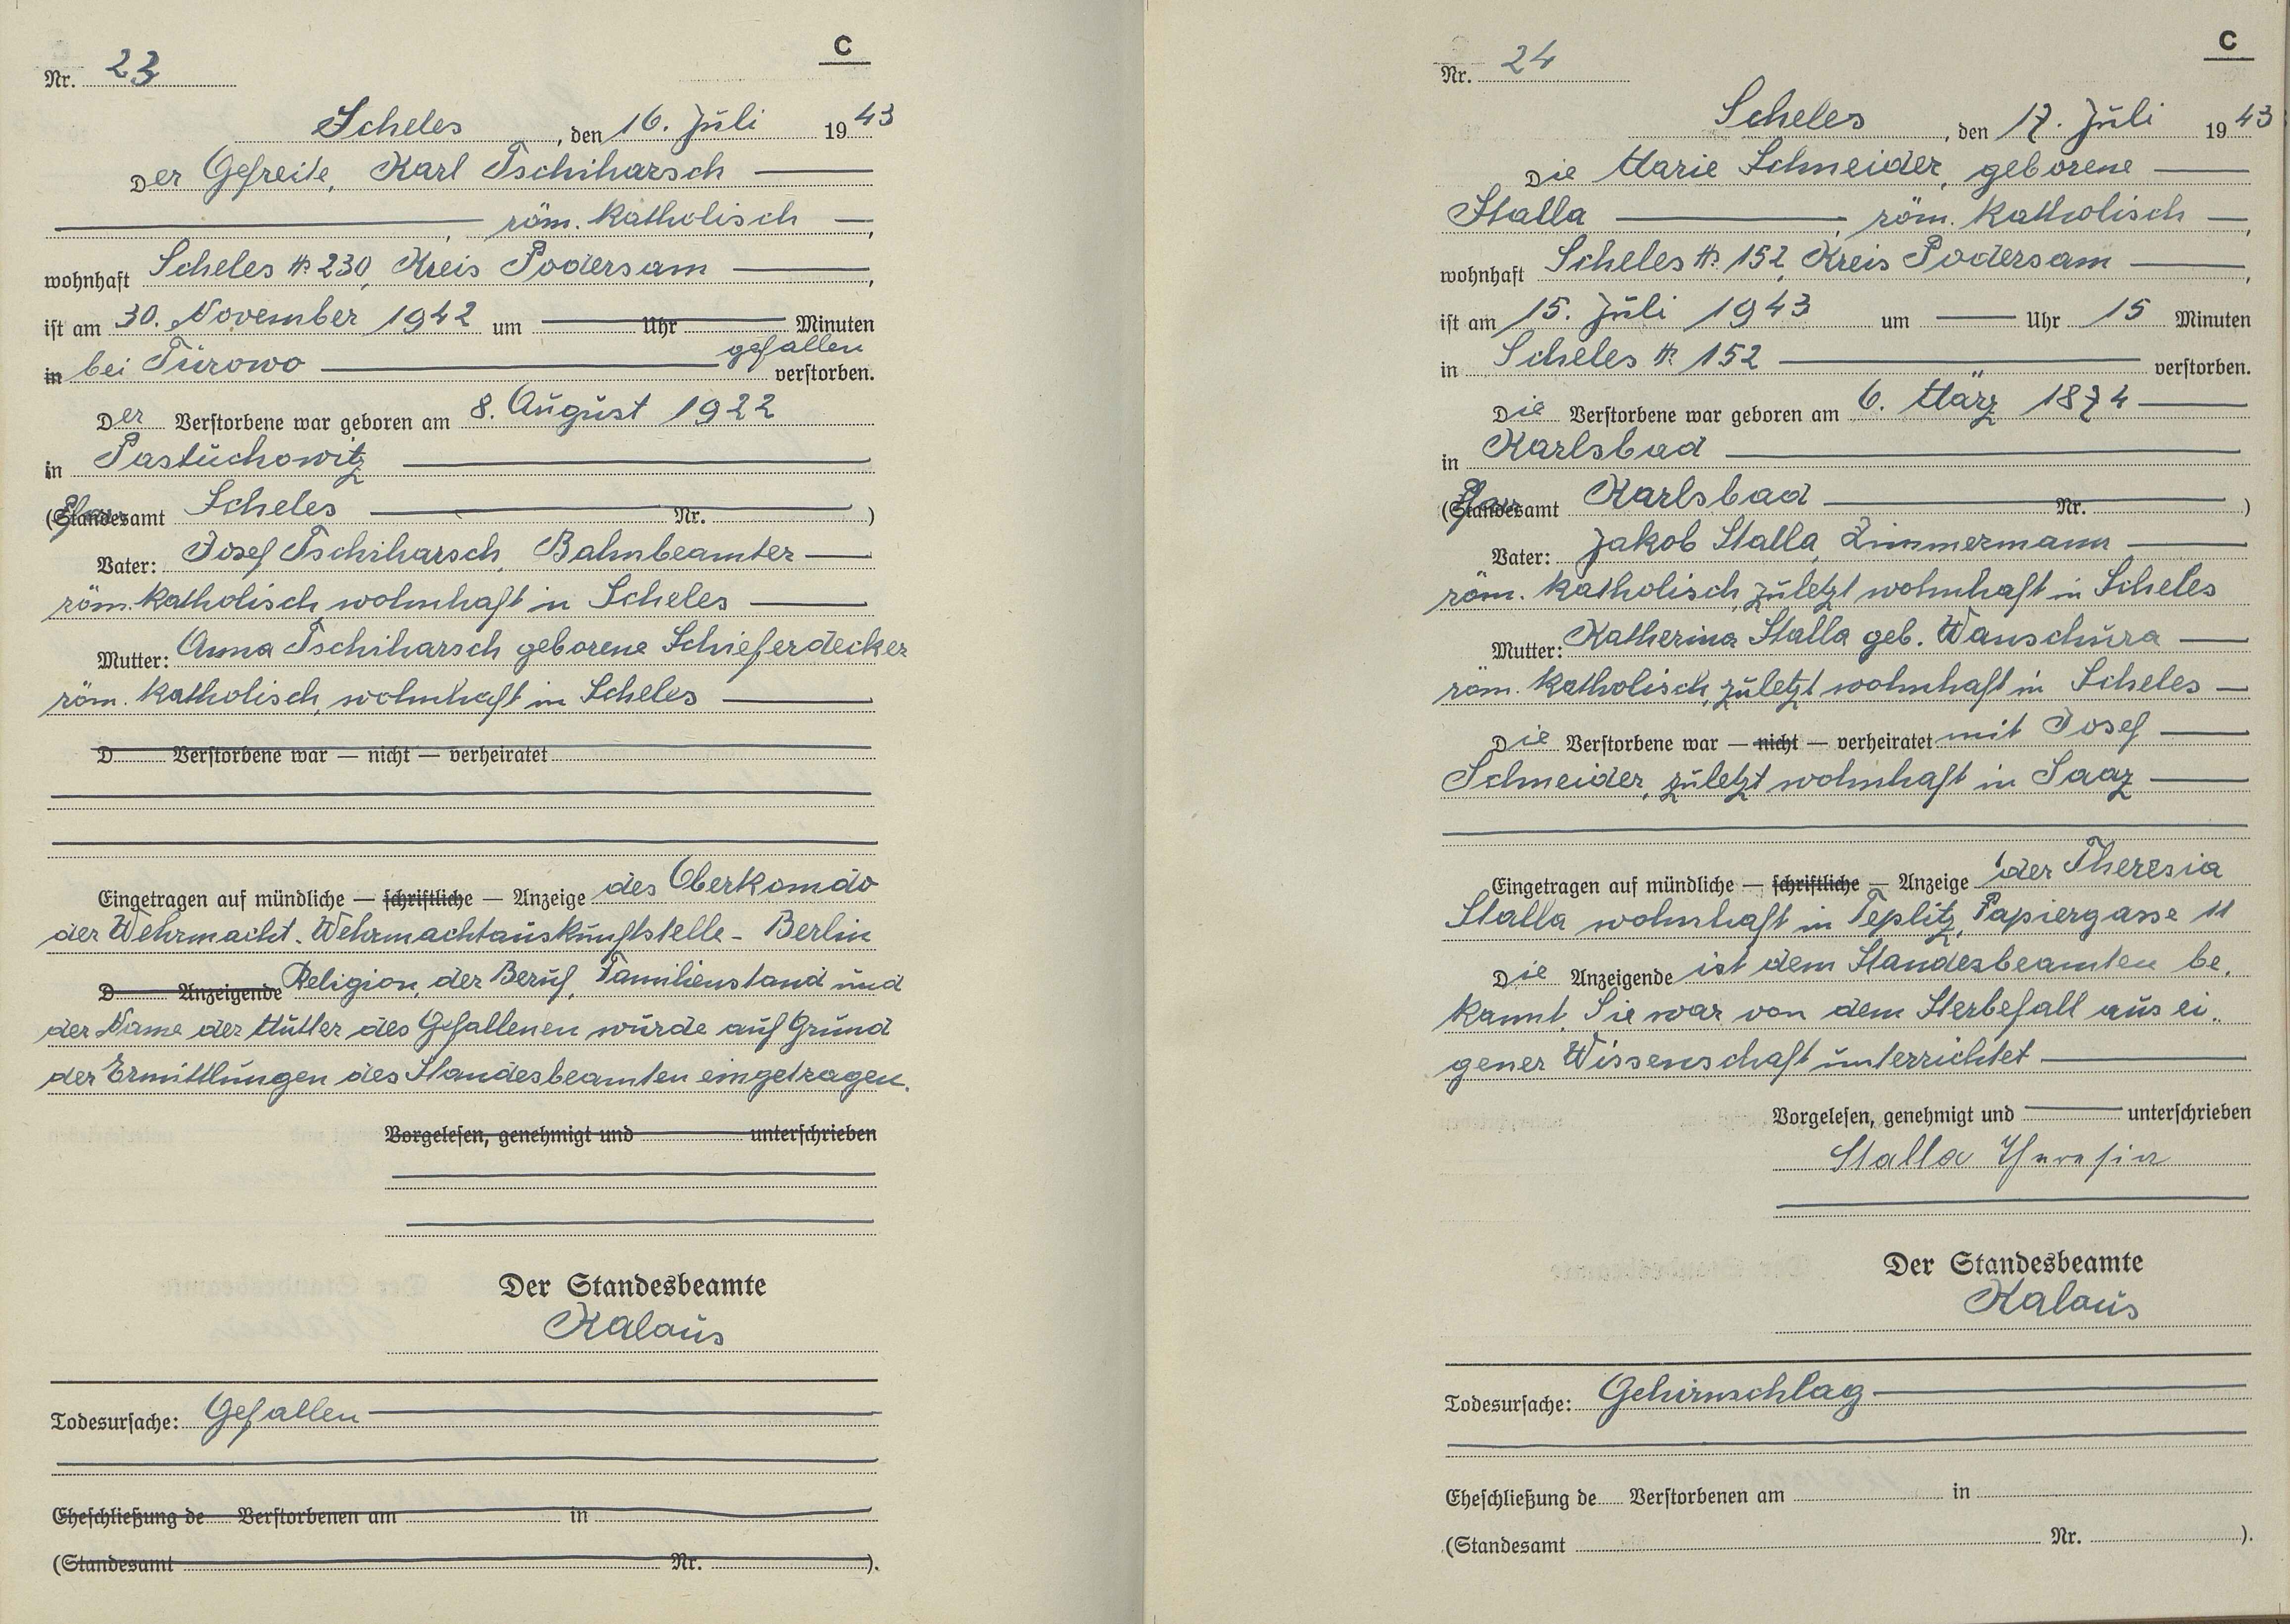 C
Nr. 23
Scheles, den 16. Juli 1943
Der Gefreite, Karl Tschiharsch
, röm. katholisch,
wohnhaft Scheles № 230, Kreis Podersam,
ist am 30. November 1942 um Uhr Minuten
gefallen
in bei Turowo verstorben.
Der Verstorbene war geboren am 8. August 1922
in Pastuchowitz
(Standesamt Scheles Nr. )
Vater: Josef Tschiharsch, Bahnbeamter
röm. katholisch, wohnhaft in Scheles
Mutter: Anna Tschiharsch geborene Schieferdecker
röm. katholisch, wohnhaft in Scheles
D Verstorbene war — nicht — verheiratet
Eingetragen auf mündliche — schriftliche — Anzeige des Oberkomdo
der Wehrmacht. Wehrmachtauskunftstelle - Berlin
D Anzeigende Religion, der Beruf, Familienstand und
der Name der Mutter des Gefallenen wurde auf Grund
der Ermittlungen des Standesbeamten eingetragen.
Vorgelesen, genehmigt und unterschrieben
Der Standesbeamte
Kalaus
Todesursache: Gefallen
Eheschließung de Verstorbenen am in
(Standesamt Nr. ).
C
Nr. 24
Scheles, den 17. Juli 1943
Die Marie Schneider, geborene
Stalla, röm. katholisch,
wohnhaft Scheles № 152, Kreis Podersam,
ist am 15. Juli 1943 um Uhr 15 Minuten
in Scheles № 152 verstorben.
Die Verstorbene war geboren am 6. März 1874
in Karlsbad
(Standesamt Karlsbad Nr. )
Vater: Jakob Stalla, Zimmermann
röm. katholisch, zuletzt wohnhaft in Scheles
Mutter: Katherina Stalla geb. Wanschura
röm. katholisch, zuletzt wohnhaft in Scheles
Die Verstorbene war — nicht — verheiratet mit Josef
Schneider, zuletzt wohnhaft in Saaz
Eingetragen auf mündliche — schriftliche — Anzeige der Theresia
Stalla wohnhaft in Teplitz, Papiergasse 11
Die Anzeigende ist dem Standesbeamten be-
kannt. Sie war von dem Sterbefall aus ei-
gener Wissenschaft unterrichtet
Vorgelesen, genehmigt und unterschrieben
Stalla Theresia
Der Standesbeamte
Kalaus
Todesursache: Gehirnschlag
Eheschließung de Verstorbenen am in
(Standesamt Nr. ).